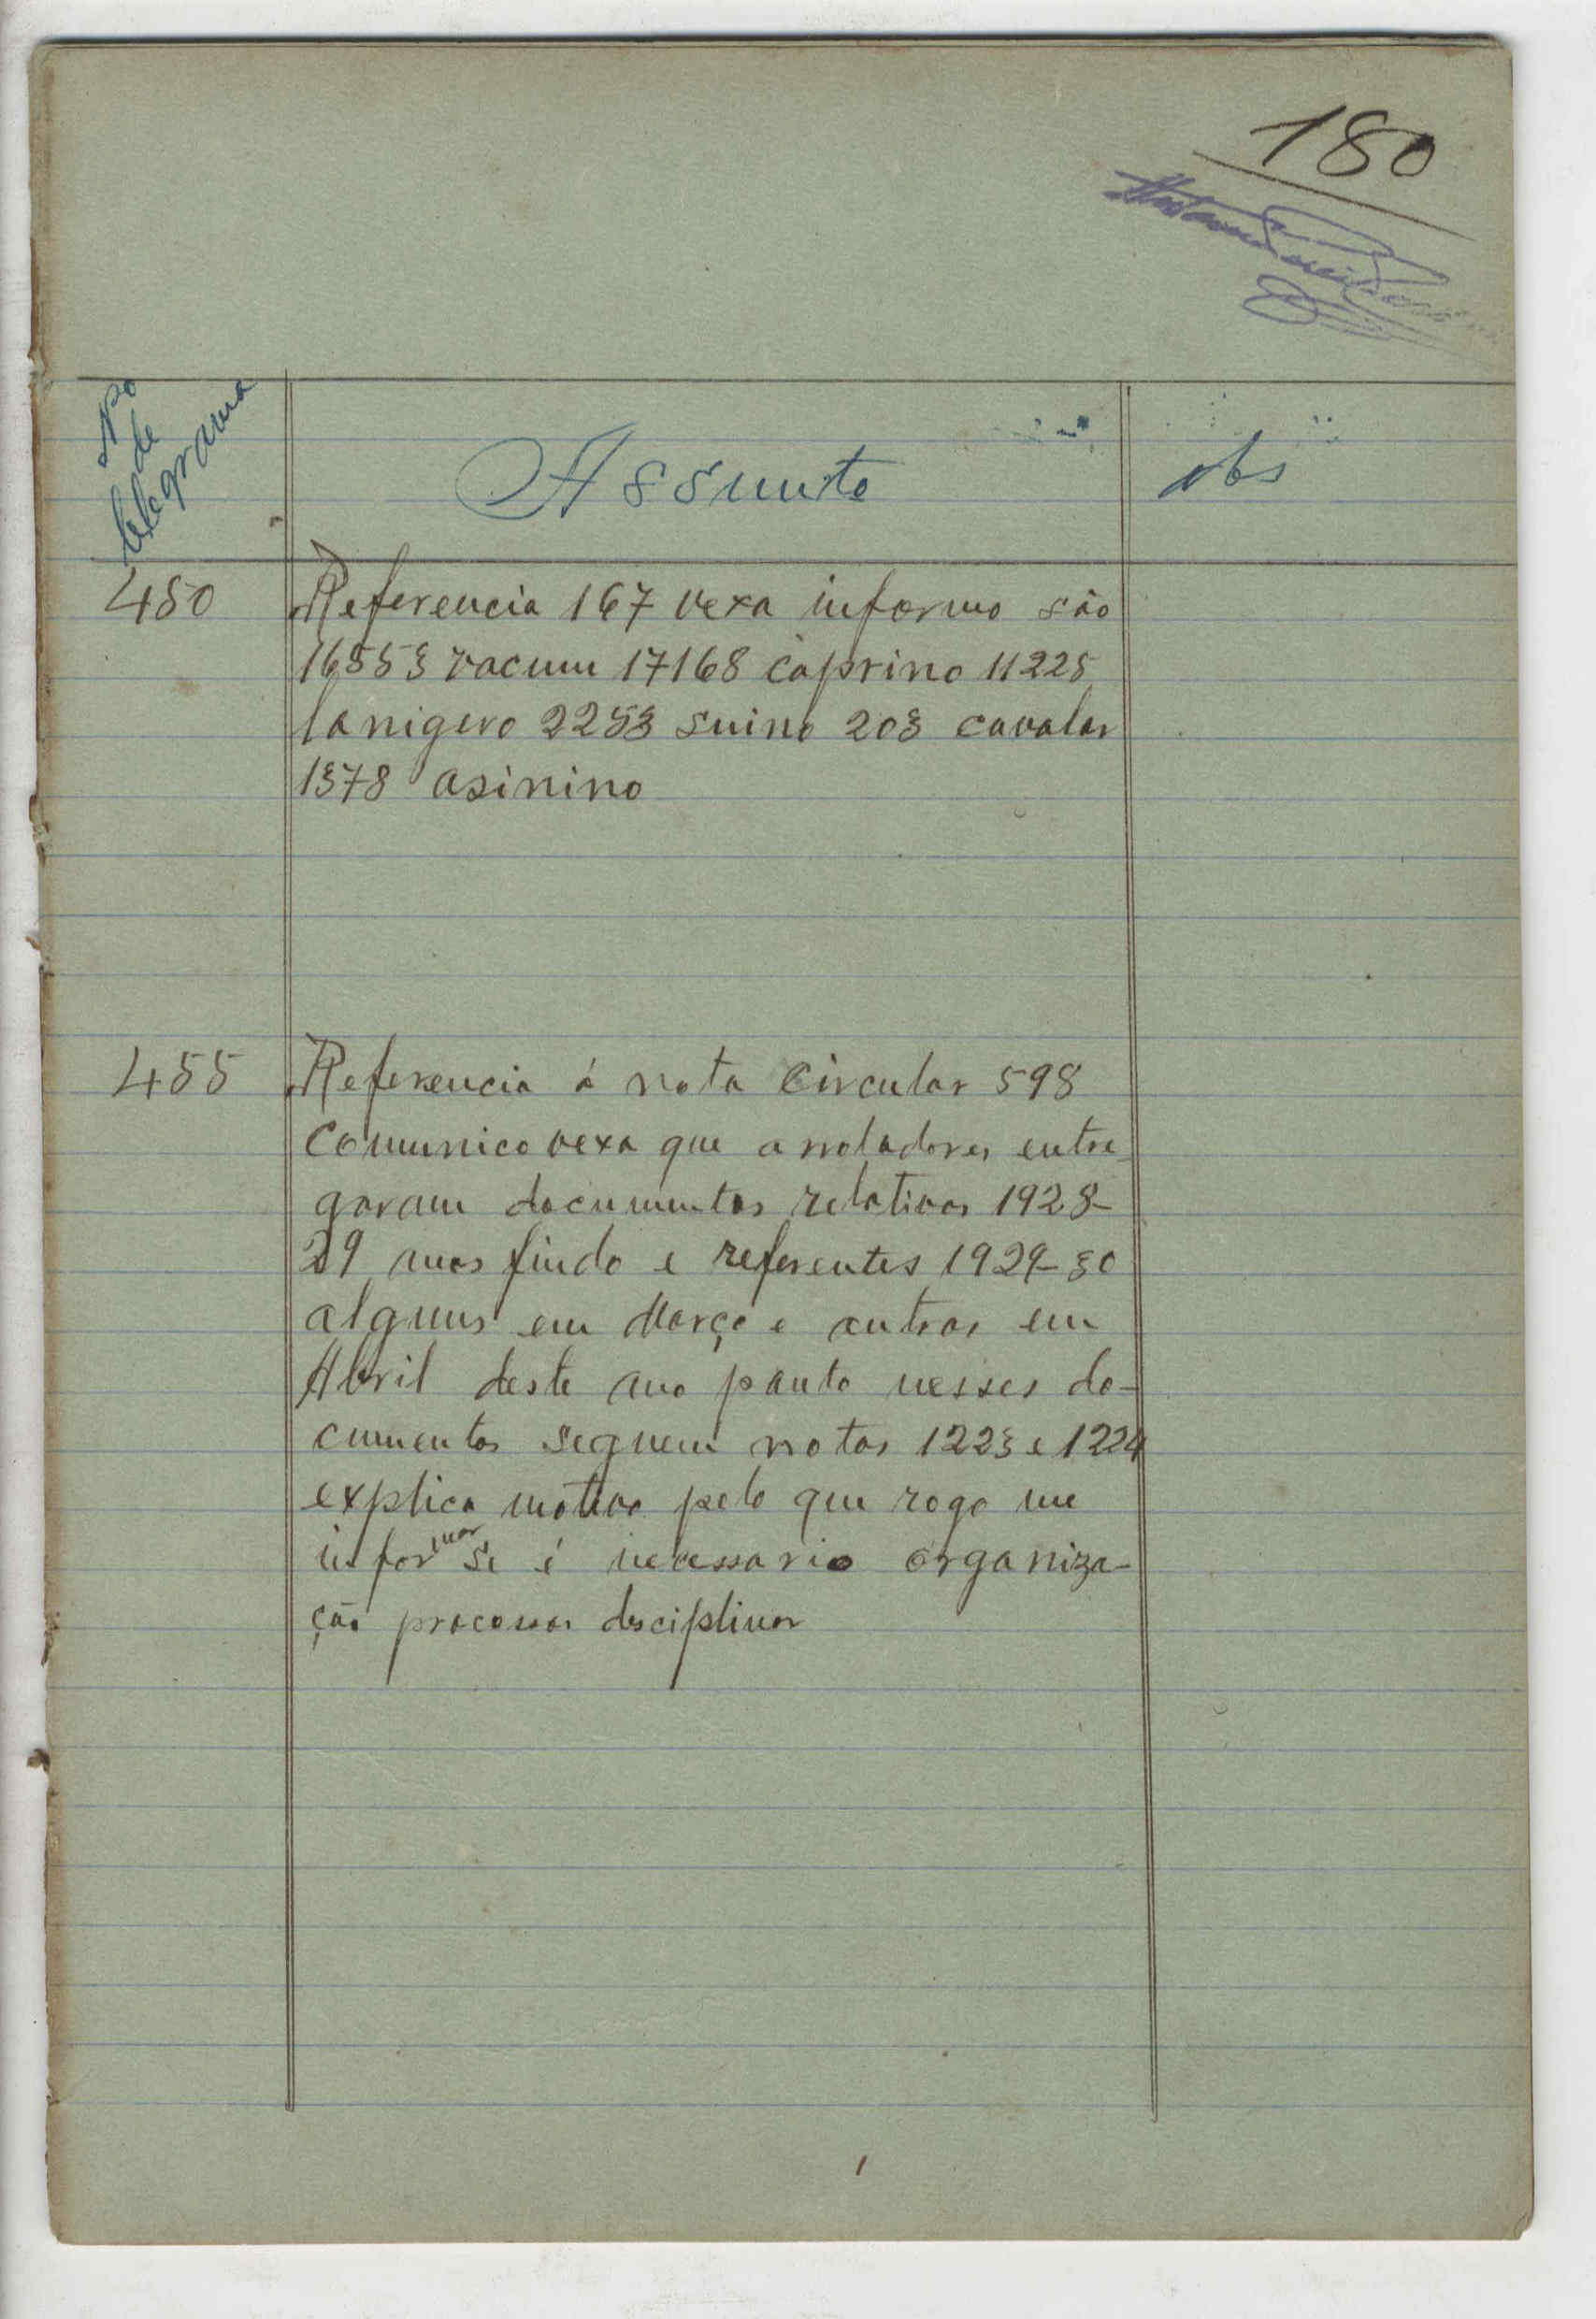 180
Nº
de
telegrama
Assunto
obs
450
Referencia 167 vexa informo são
16553 vacum 17168 caprino 11225
lanigero 2253 suino 203 cavalar
1378 asinino
455
Referencia á nota circular 598
Comunico vexa que anotadores entre
garam documentos relativos 1928-
29 mes findo e referentes 1929-30
alguns em Março e outros em
Abril deste ano ponto nesses do-
cumentos seguem notas 1223 e 1224
explica motivo pelo que rogo me
informar se é necessario organiza-
ção processos desciplinar